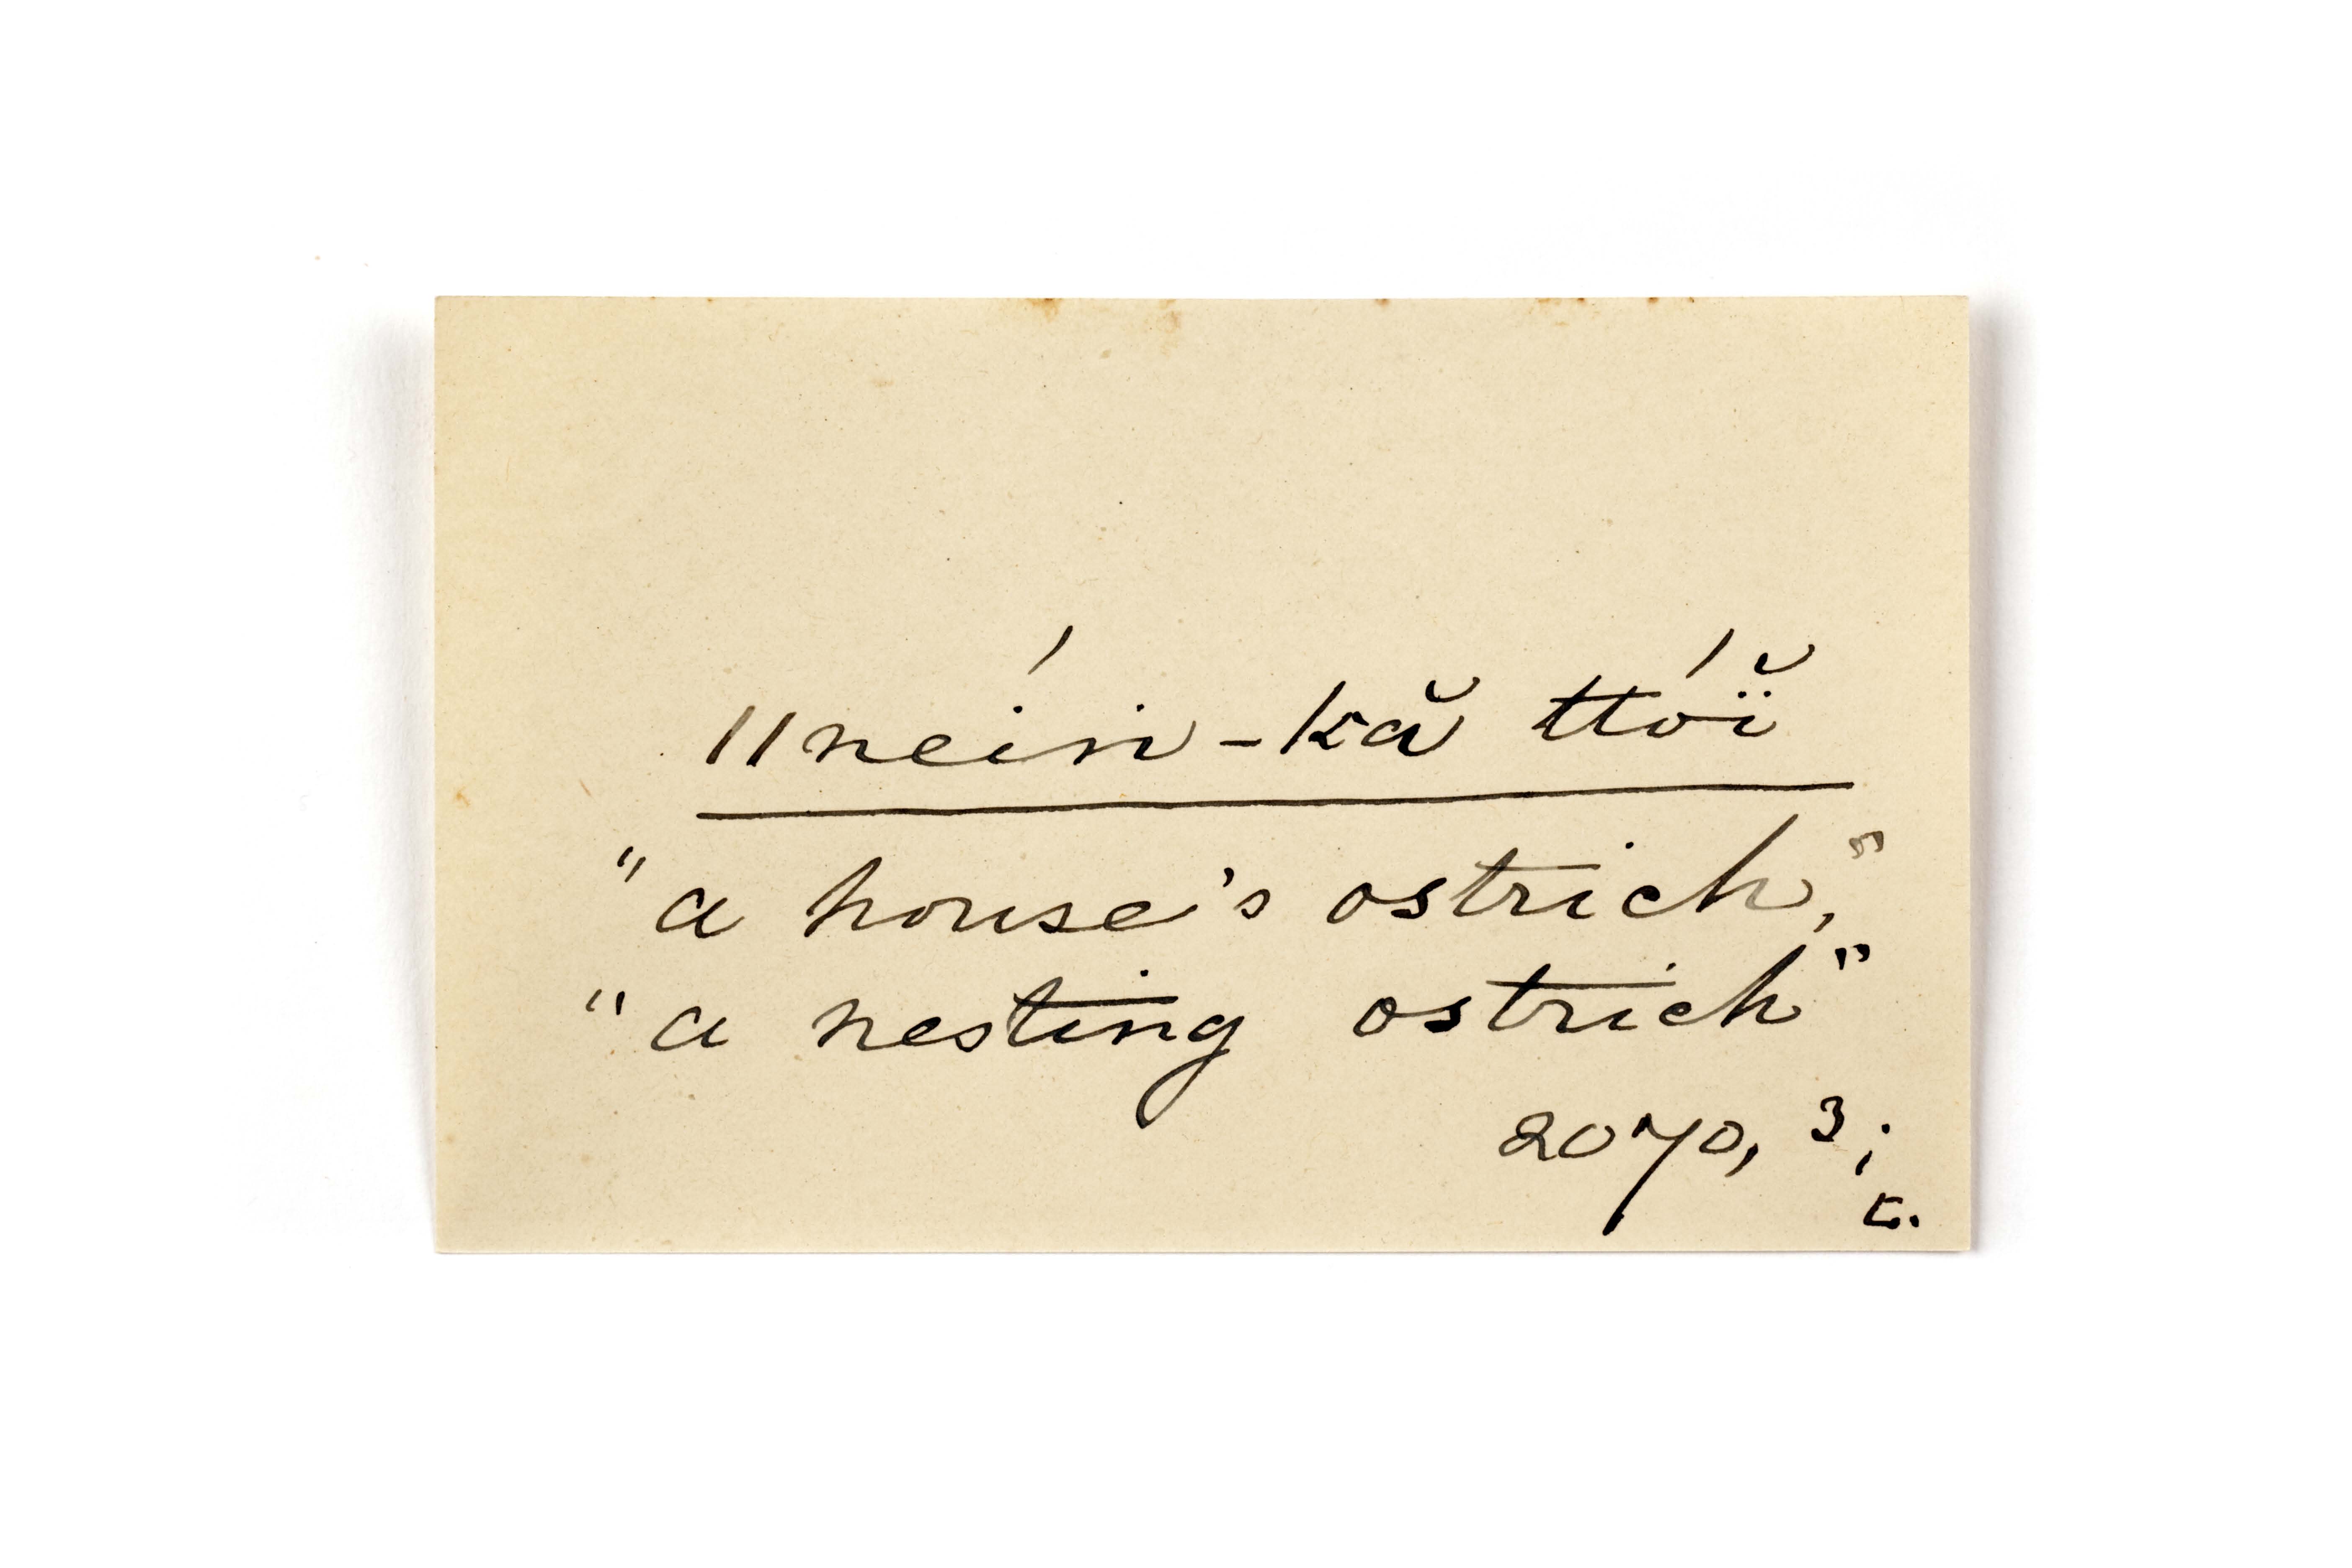 ǁneín-kă ttóï̆
"a house's ostrich,"
"a nesting ostrich"
2070, 3;